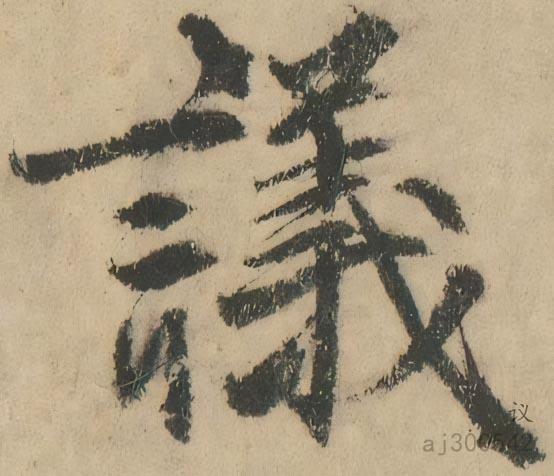 議
议
aj300542